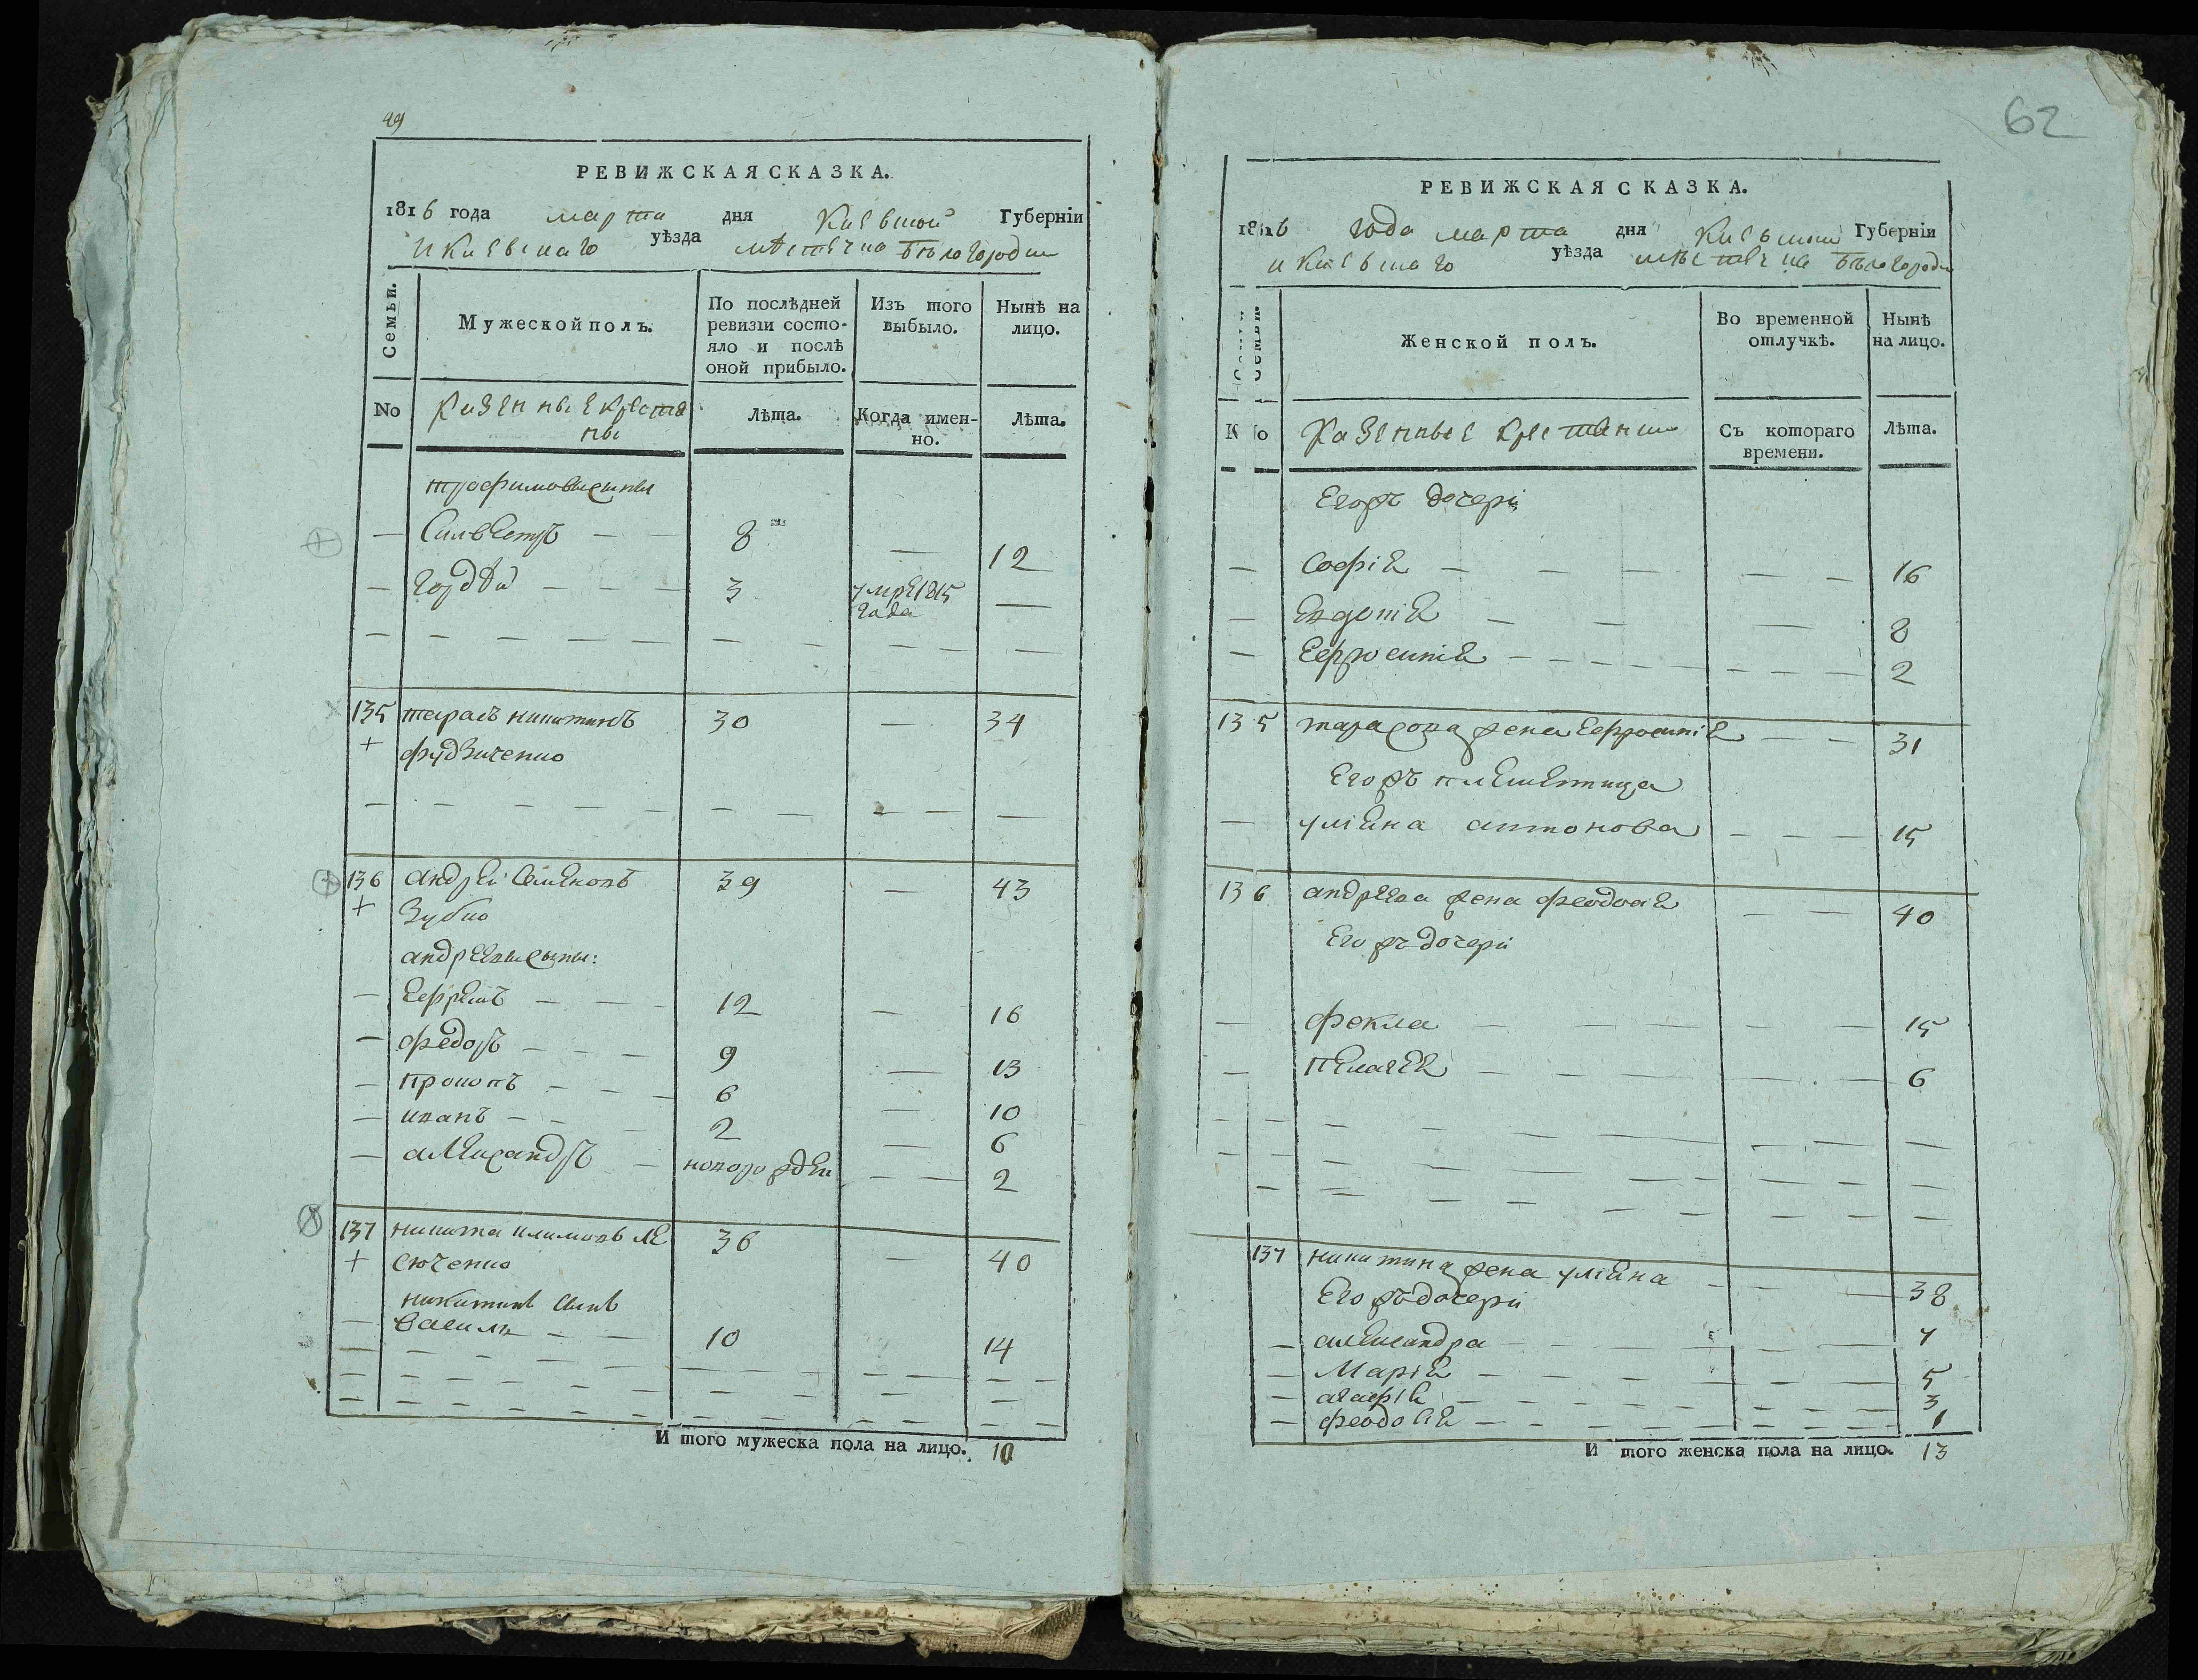 49
РЕВИЖСКАЯ СКАЗКА.
1816 года марта дня Киевской Губерніи
и Киевскаго уѣзда мѣстечка Бѣлогородки
Семьи.
Мужеской полъ.
По послѣдней ревизіи состо-
яло и послѣ
оной прибыло.
Изъ того
выбыло.
Нынѣ на
лицо.
No
Казенные крестя
ны
Лѣта.
Когда имен-
но.
Лѣта.
трофимовы сыны
Силвестръ 8 12
гордѣй 3 умре 1815
года
135 тарасъ никитинъ 30 34
136 андрей Семеновъ 39 43
Зубко
андреевы сыны:
Ефремъ 12 16
федоръ 9 13
прокопъ 6 10
иванъ 2 6
александръ новорожден 2
137 никита климовъ ле 36 40
сюченко
никитинъ сынъ
Василь 10 14
И того мужеска пола на лицо. 10
62
РЕВИЖСКАЯ СКАЗКА.
1816 года марта дня Киевской Губерніи
и Киевскаго уѣзда мѣстечка Бѣлогородки
Семьи
Женской полъ.
Во временной
отлучкѣ.
Нынѣ
на лицо.
No
Казенные крестянки
Съ котораго
времени.
Лѣта.
Егожъ дочери
софія 16
Евдокія 8
Ефросинія 2
135 тарасова жена Ефросинія 31
Егожъ племенница
уліяна антонова 15
136 андреева жена феодосія 40
Егожъ дочери
фекла 15
пелагея 6
137 никитина жена уліяна 38
Егожъ дочери
александра 7
Марія 5
агафія 3
феодосія 1
И того женска пола на лицо. 13